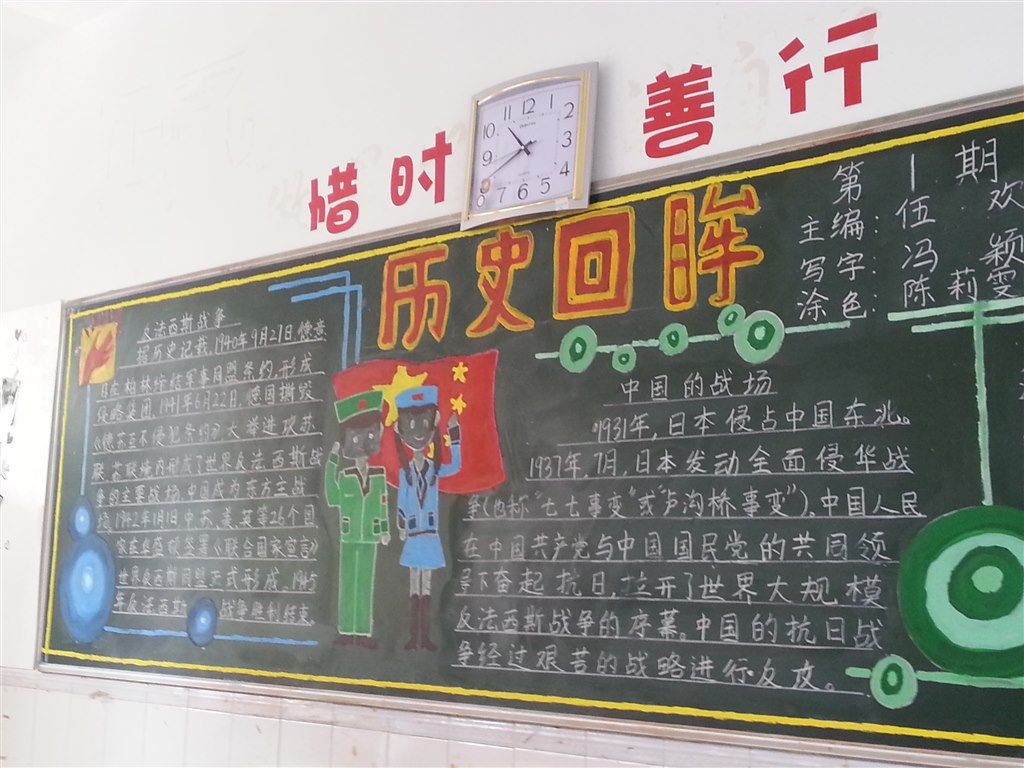 惜时
善行
11 12 1
10 2
9 3
8 4
7 6 5
历史回眸
第1期
主编:伍欢
写字:冯颖
涂色:陈莉雯
反法西斯战争
据历史记载,1940年9月27日,德意
日在柏林缔结军事同盟条约,形成
侵略集团,1941年6月22日,德国撕毁
《德苏互不侵犯条约》大举进攻苏
联,苏联境内形成了世界反法西斯战
争的主要战场,中国成为东方主战
场,1942年1月1日中苏、美、英等26个国
家在华盛顿签署《联合国家宣言》
世界反西斯同盟正式形成,1945
年反法西斯战争胜利结束.
中国的战场
1931年,日本侵占中国东北。
1937年,7月,日本发动全面侵华战
争(仍称"七七事变"或"卢沟桥事变").中国人民
在中国共产党与中国国民党的共同领
导下奋起抗日,拉开了世界大规模
反法西斯战争的序幕。中国的抗日战
争经过艰苦的战略进行反攻。